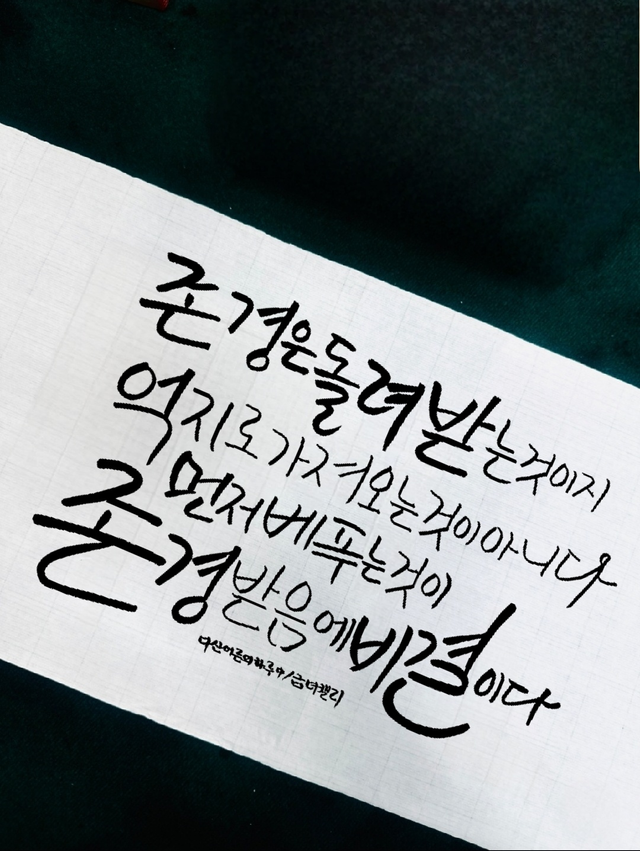 존경은 돌려받는것이지
억지로 가져오는것이아니다
먼저베푸는것이
존경받음에비결이다
다산어른의하루中/금녀캘리